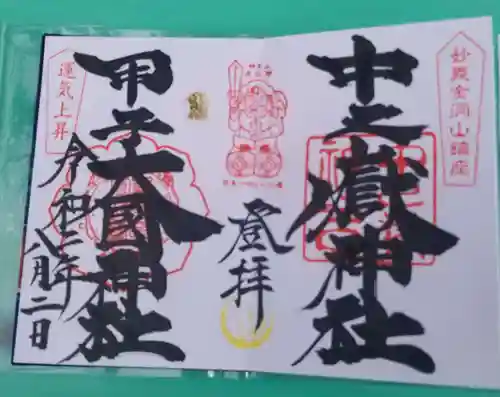 妙義金洞山鎮座
中之嶽神社
登拝
甲子大國神社
運気上昇
令和二年
八月二日